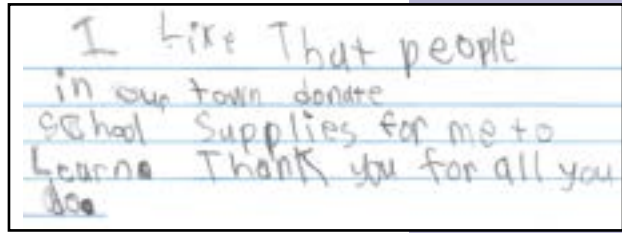 I Like That people
in our town donate
school Supplies for me to
Learn. Thank you for all you
do.